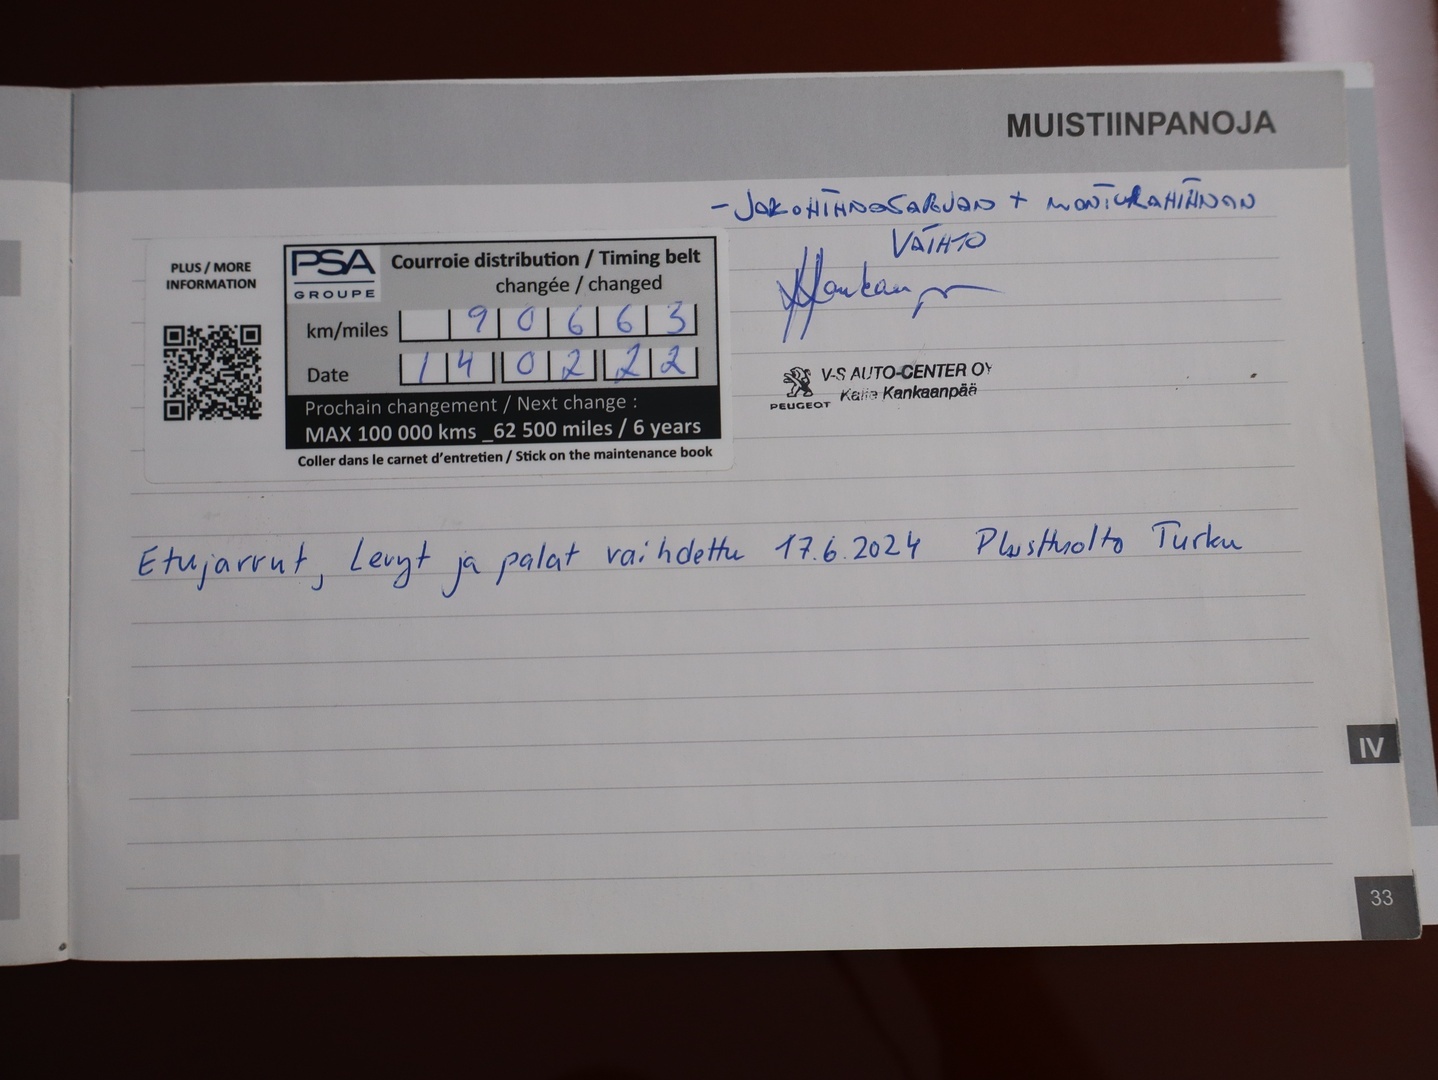 MUISTIINPANOJA
- JAKOHIHNASARJAN + MONIURAHIHNAN
VAIHTO
PLUS / MORE
INFORMATION
PSA
GROUPE
Courroie distribution / Timing belt
changée / changed
km/miles 90663
Date 14 02 22
Prochain changement / Next change :
MAX 100 000 kms _62 500 miles / 6 years
Coller dans le carnet d'entretien / Stick on the maintenance book
PEUGEOT
V-S AUTO-CENTER OY
Kankaanpää
Etujarrut, Levyt ja palat vaihdettu 17.6.2024 Plushuolto Turku
IV
33